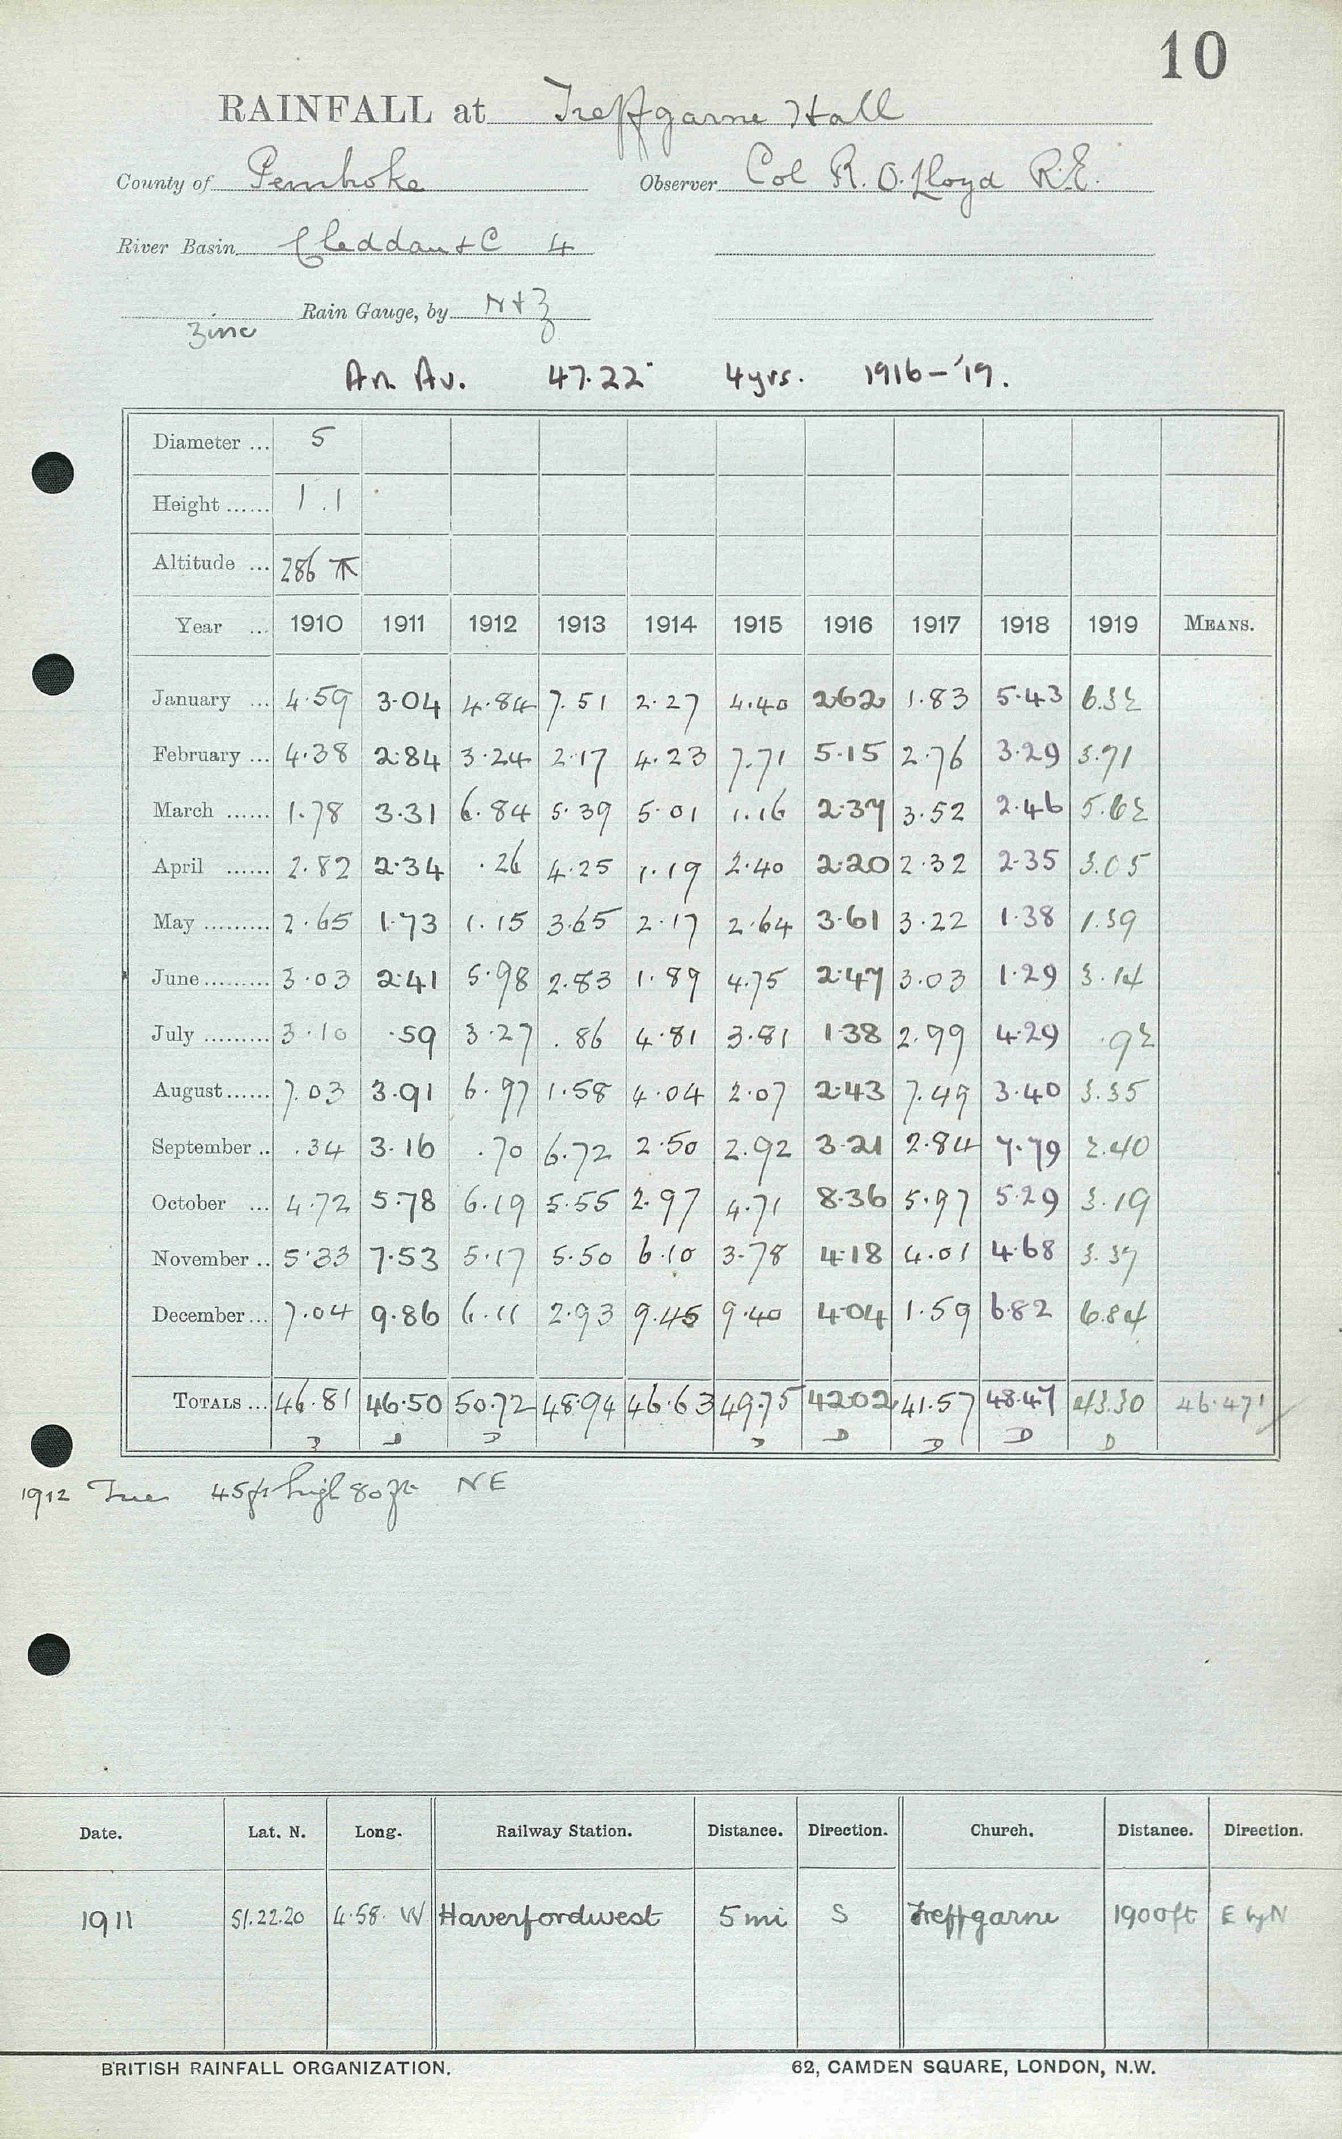 10
RAINFALL at Treffgarne Hall
County of Pembroke Observer Col R. O. Lloyd R.E.
River Basin Cleddau & C 4
Zinc Rain Gauge, by N & Z
An. Av. 47.22" 4yrs. 1916-'19.
Diameter ... 5
Height ...... 1.1
Altitude ... 286
Year ... 1910 1911 1912 1913 1914 1915 1916 1917 1918 1919 MEANS.
January ... 4.59 3.04 4.84 7.51 2.27 4.40 2.62 1.83 5.43 6.32
February ... 4.38 2.84 3.24 2.17 4.23 7.71 5.15 2.76 3.29 3.71
March ...... 1.78 3.31 6.84 5.39 5.01 1.16 2.37 3.52 2.46 5.62
April ...... 2.82 2.34 .26 4.25 1.19 2.40 2.20 2.32 2.35 3.05
May ......... 2.65 1.73 1.15 3.65 2.17 2.64 3.61 3.22 1.38 1.39
June ......... 3.03 2.41 5.98 2.83 1.89 4.75 2.47 3.03 1.29 3.14
July ......... 3.10 .59 3.27 .86 4.81 3.81 1.38 2.99 4.29 .92
August ...... 7.03 3.91 6.97 1.58 4.04 2.07 2.43 7.49 3.40 3.35
September .. .34 3.16 .70 6.72 2.50 2.92 3.21 2.84 7.79 2.40
October ... 4.72 5.78 6.19 5.55 2.97 4.71 8.36 5.97 5.29 3.19
November .. 5.33 7.53 5.17 5.50 6.10 3.78 4.18 4.01 4.68 3.37
December ... 7.04 9.86 6.11 2.93 9.45 9.40 4.04 1.59 6.82 6.84
TOTALS ... 46.81 46.50 50.72 48.94 46.63 49.75 42.02 41.57 48.47 43.30 46.471
D D D D D D D D
1912 Tree 45ft high 80ft NE
Date. Lat. N. Long. Railway Station. Distance. Direction. Church. Distance. Direction.
1911 51.22.20 4.58. W Haverfordwest 5 mi S Treffgarne 1900ft E by N
BRITISH RAINFALL ORGANIZATION. 62, CAMDEN SQUARE, LONDON, N.W.